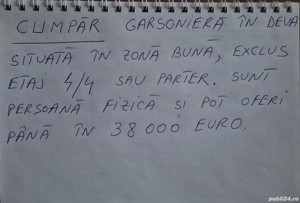 CUMPĂR GARSONIERĂ ÎN DEVA
SITUATĂ ÎN ZONĂ BUNĂ, EXCLUS
ETAJ 4/4 SAU PARTER. SUNT
PERSOANĂ FIZICĂ SI POT OFERI
PÂNĂ ÎN 38000 EURO.
publi24.ro